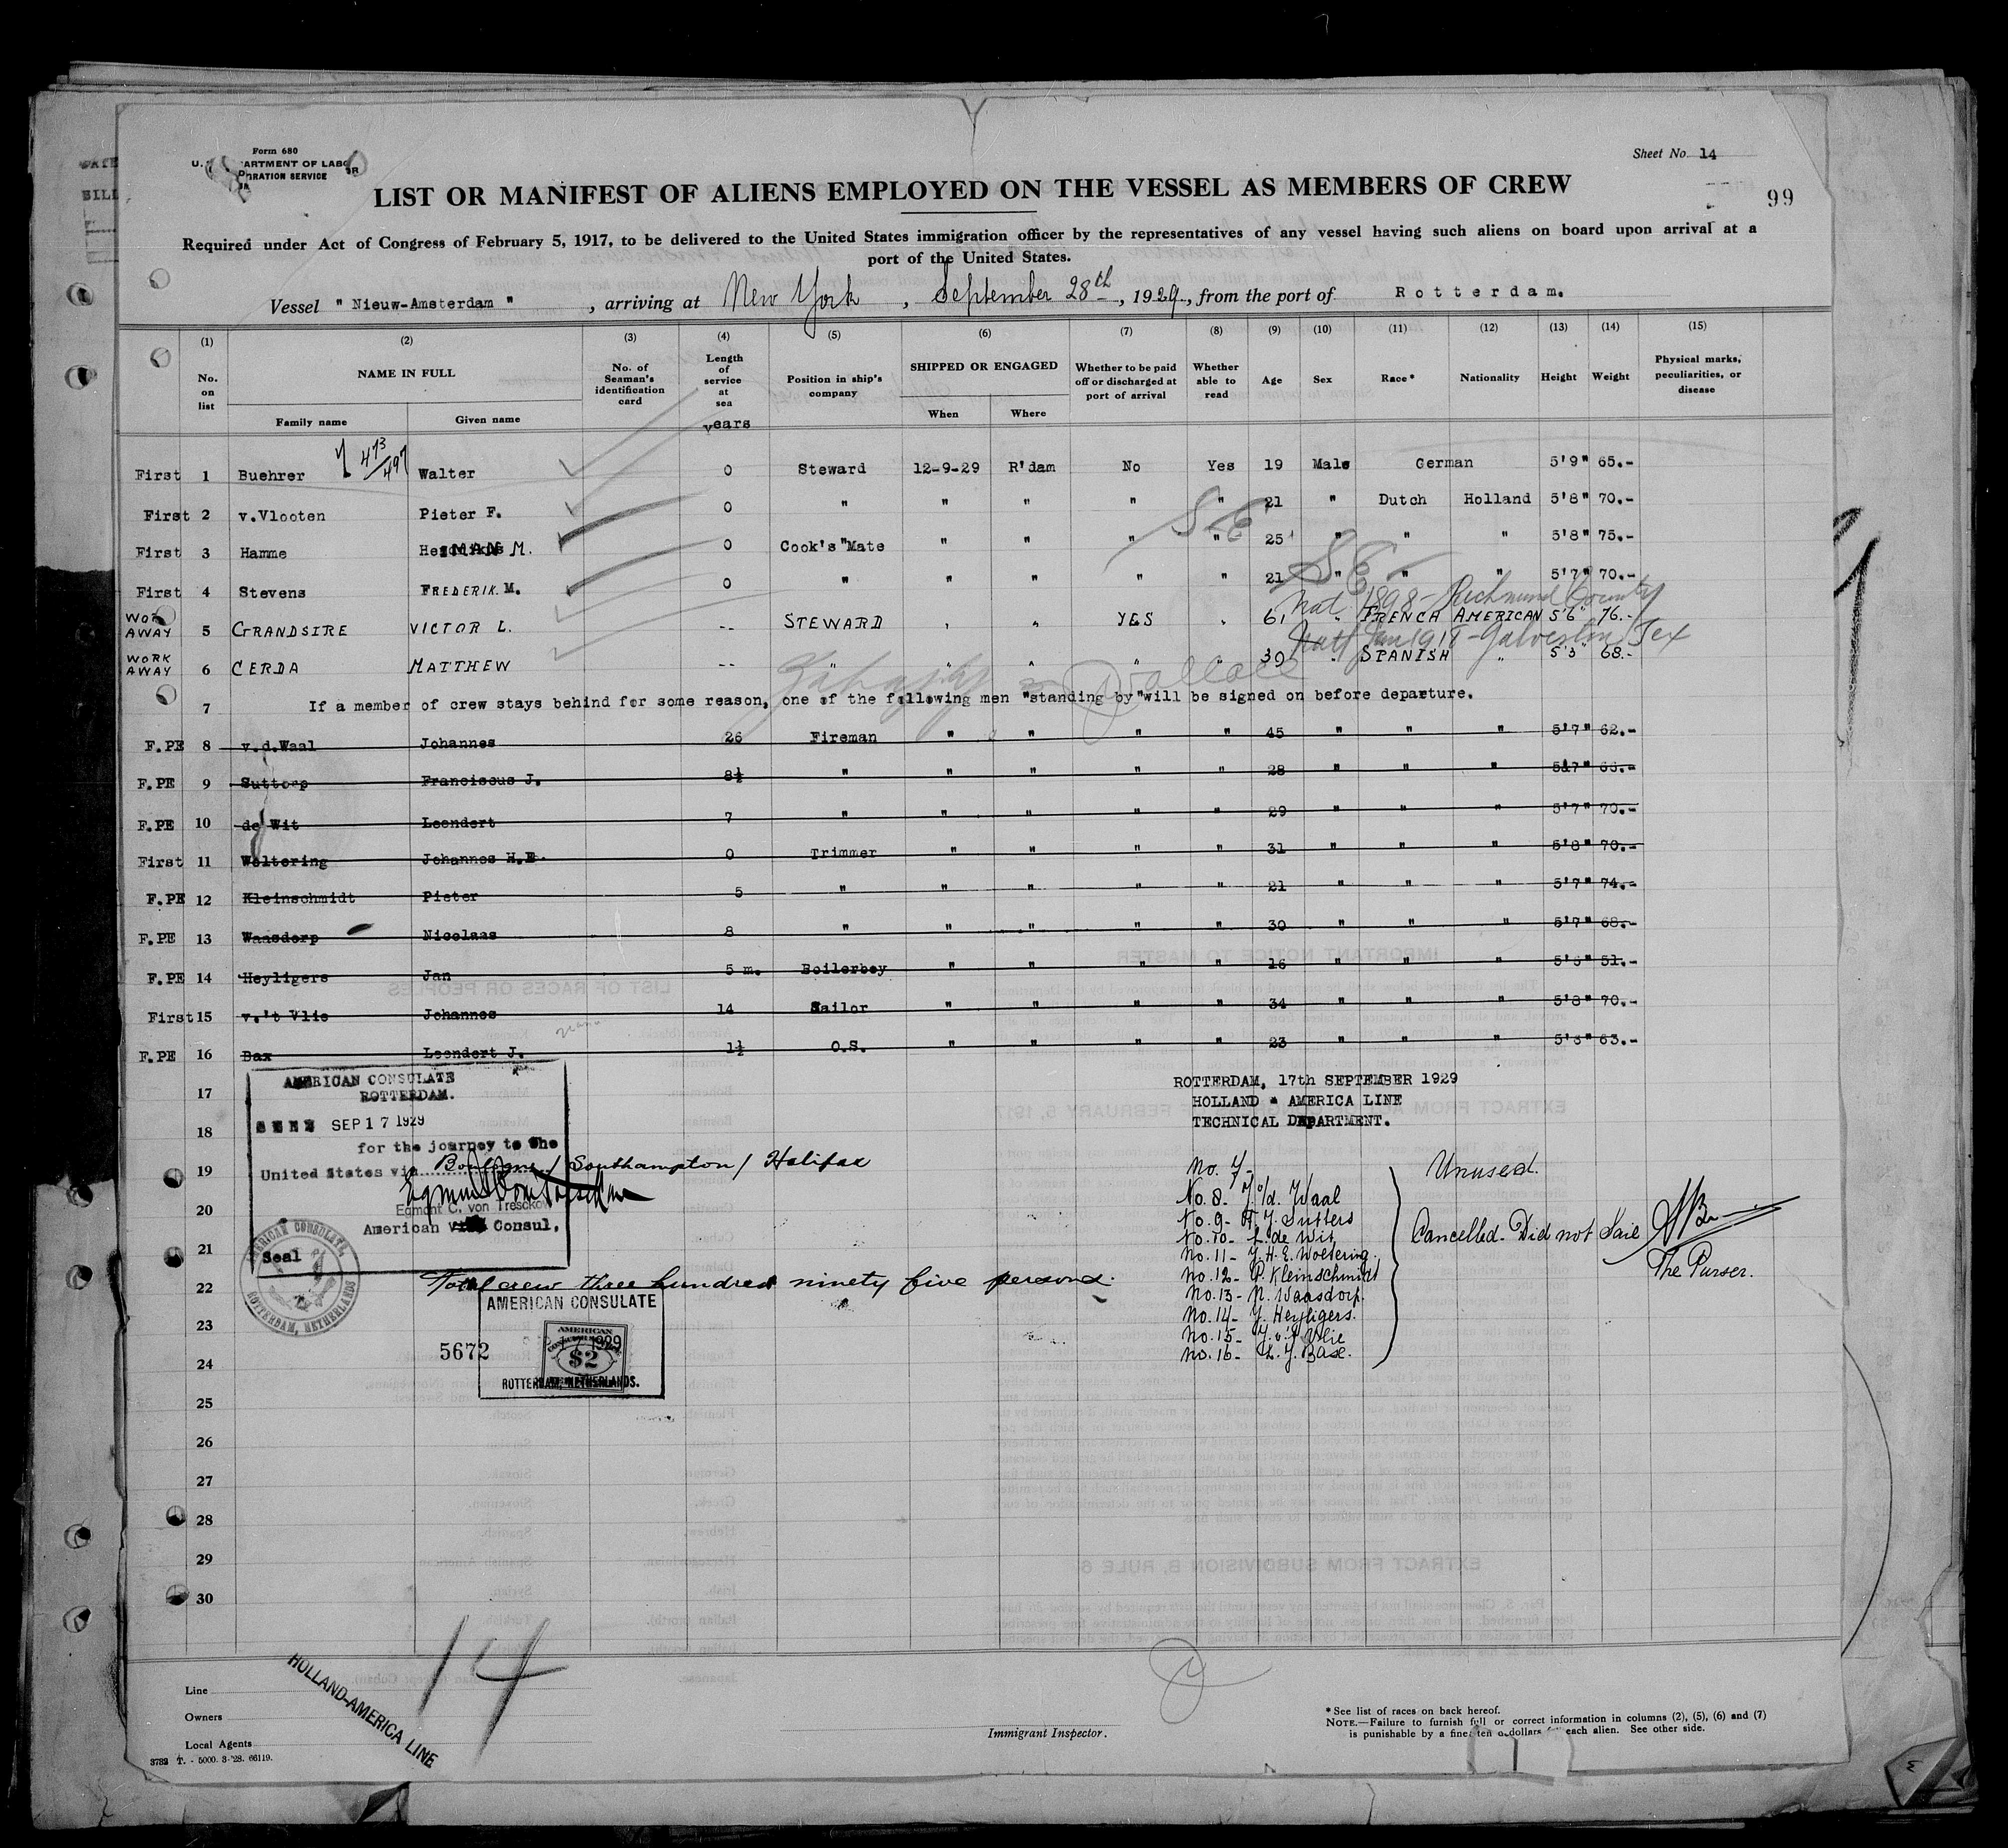 Form 680
Sheet No. 14
LIST OR MANIFEST OF ALIENS EMPLOYED ON THE VESSEL AS MEMBERS OF CREW
99
Required under Act of Congress of February 5, 1917, to be delivered to the United States immigration officer by the representatives of any vessel having such aliens on board upon arrival at a
port of the United States.
Vessel " Nieuw-Amsterdam " , arriving at New York , September 28th , 1929, from the port of Rotterdam.
(1) (2) (3) (4) (5) (6) (7) (8) (9) (10) (11) (12) (13) (14) (15)
No. on list NAME IN FULL Family name Given name No. of Seaman's identification card Length of service at sea years Position in ship's company SHIPPED OR ENGAGED When Where Whether to be paid off or discharged at port of arrival Whether able to read Age Sex Race* Nationality Height Weight Physical marks, peculiarities, or disease
473/497
First 1 Buehrer Walter 0 Steward 12-9-29 R'dam No Yes 19 Male German 5'9" 65.-
First 2 v.Vlooten Pieter F. 0 " " " " " 21 " Dutch Holland 5'8" 70.-
First 3 Hamme M. 0 Cook's Mate " " " " 25 " " " 5'8" 75.-
First 4 Stevens FREDERIK M. 0 " " " " " 21 " " " 5'7" 70.-
Nat. 1898 - Richmond County
WORK AWAY 5 GRANDSIRE VICTOR L. -- STEWARD " " YES " 61 " FRENCH AMERICAN 5'6" 76.-
Jan 1918 - Galveston Tex
WORK AWAY 6 CERDA MATTHEW -- " " " " " 39 " SPANISH " 5'3" 68.-
Wallace
7 If a member of crew stays behind for some reason, one of the following men "standing by" will be signed on before departure.
F.PE 8 v.d.Waal Johannes 26 Fireman " " " " 45 " " " 5'7" 62.-
F.PE 9 Suttorp Franciscus J. 8½ " " " " " 28 " " " 5'7" 66.-
F.PE 10 de Wit Leendert 7 " " " " " 29 " " " 5'7" 70.-
First 11 Woltering Johannes H.E. 0 Trimmer " " " " 31 " " " 5'8" 70.-
F.PE 12 Kleinschmidt Pieter 5 " " " " " 21 " " " 5'7" 74.-
F.PE 13 Waasdorp Nicolaas 8 " " " " " 30 " " " 5'7" 68.-
F.PE 14 Heyligers Jan 5 m. Boilerboy " " " " 16 " " " 5'6" 51.-
First 15 v.'t Vlie Johannes 14 Sailor " " " " 34 " " " 5'8" 70.-
F.PE 16 Bax Leendert J. 1½ O.S. " " " " 23 " " " 5'6" 63.-
17
18
19
20
21
22
23
24
25
26
27
28
29
30
AMERICAN CONSULATE
ROTTERDAM.
SEEN SEP 17 1929
for the journey to the
United States via Boulogne / Southampton / Halifax
Egmont C. von Tresckow
American Consul.
Seal
AMERICAN CONSULATE, ROTTERDAM, NETHERLANDS
Total crew three hundred ninety five persons.
AMERICAN CONSULATE
5672
AMERICAN
1929
$2
ROTTERDAM, NETHERLANDS.
ROTTERDAM, 17th SEPTEMBER 1929
HOLLAND - AMERICA LINE
TECHNICAL DEPARTMENT.
No. 7- Unused.
No. 8- J. v/d. Waal
No. 9- F. J. Sutters
No. 10- L. de Wit
No. 11- J. H. E. Woltering.
No. 12- P. Kleinschmidt
No. 13- N. Waasdorp.
No. 14- J. Heyligers.
No. 15- J. v. 't Vlie
No. 16- L. J. Bax.
Cancelled. Did not Sail
The Purser.
14
Line
Owners
Local Agents
HOLLAND-AMERICA LINE
3782 T. - 5000. 3-'28. 66119.
Immigrant Inspector.
* See list of races on back hereof.
NOTE.—Failure to furnish full or correct information in columns (2), (5), (6) and (7)
is punishable by a fine ten dollars each alien. See other side.